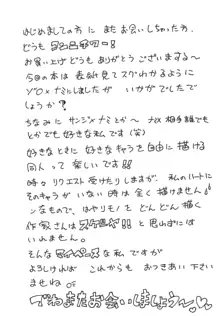 はじめましての方に またお会いしちゃった方、
どうも
お買い上げどうもありがとうございまする〜
今回の本は 表紙見てスグわかるように
ゾロ×ナミにしましたが いかがでしたで
しょうか?
ちなみに サンジ×ナミとか〜 ナミ×相手誰でも
とかでも好きな私です(笑)
好きなときに 好きなキャラを自由に描ける
同人って 楽しいです!!
時々リクエスト受けたりしますが、私のハートに
そのキャラが いない時は全く描けません
なものです、はやりモノを どんどん描く
作家さんは スゲェ!! と思わずには
いれません。
そんな マイペースな 私ですが
よろしければ これからも おつきあい下さい
ませね
でわまたお会いしましょう〜